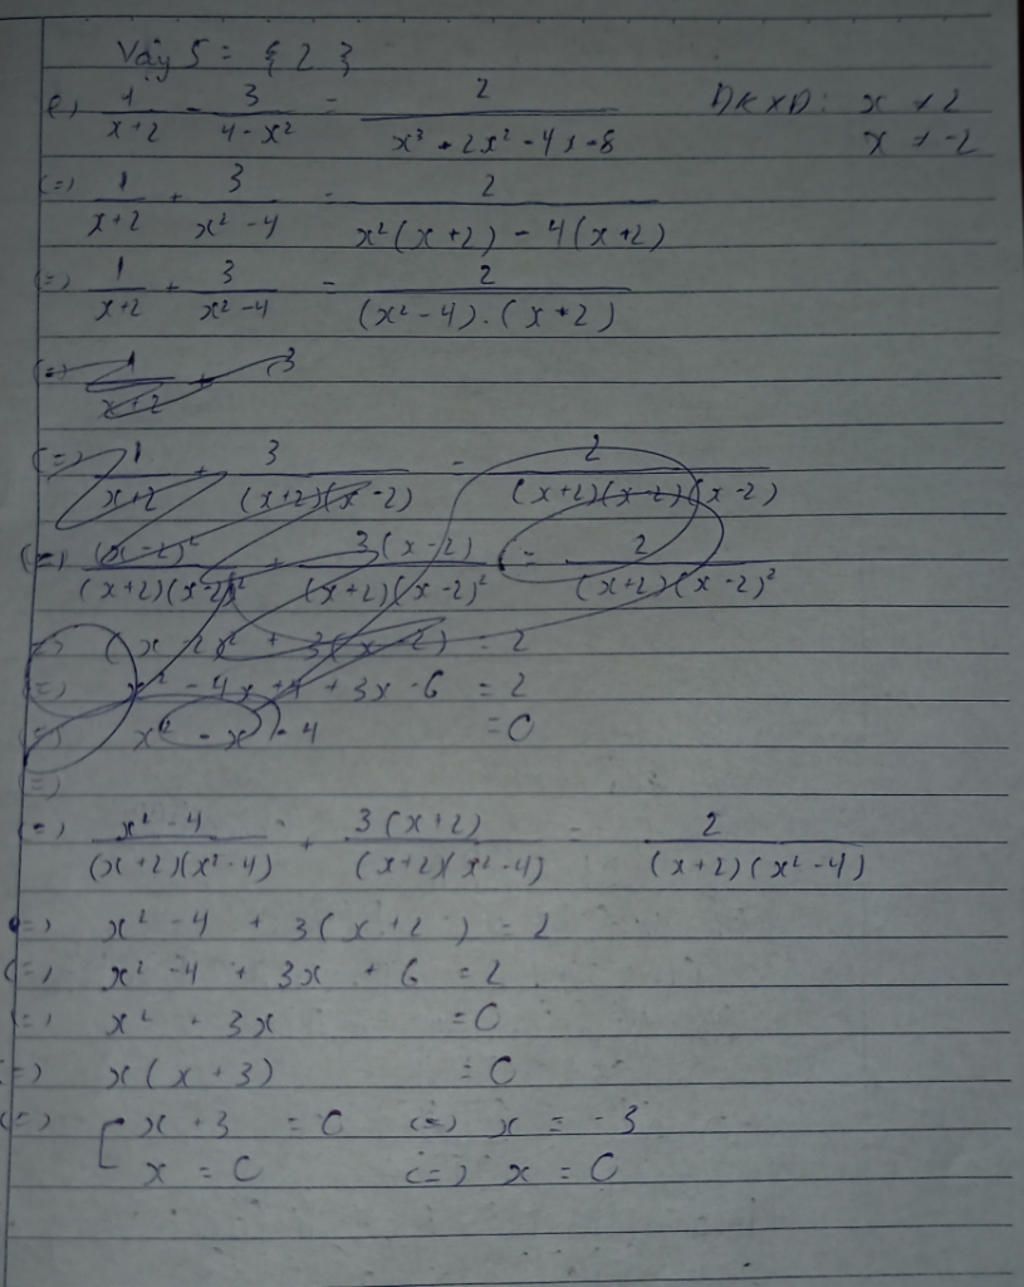 Vậy S = { 2 }
e) 1/(x+2) - 3/(4-x²) = 2/(x³+2x²-4x-8) ĐKXĐ: x ≠ 2
x ≠ -2
(=) 1/(x+2) + 3/(x²-4) = 2/(x²(x+2)-4(x+2))
(=) 1/(x+2) + 3/(x²-4) = 2/((x²-4).(x+2))
(=) 1/(x+2) + 3
(=) 1/(x+2) + 3/((x+2)(x-2)) = 2/((x+2)(x-2)(x-2))
(=) (x-2)²/((x+2)(x-2)²) + 3(x-2)/((x+2)(x-2)²) = 2/((x+2)(x-2)²)
=) (x-2)² + 3(x-2) = 2
(=) x² - 4x + 4 + 3x - 6 = 2
(=) x² - x - 4 = 0
(=)
(=) (x²-4)/((x+2)(x²-4)) + 3(x+2)/((x+2)(x²-4)) = 2/((x+2)(x²-4))
=) x² - 4 + 3(x+2) = 2
(=) x² - 4 + 3x + 6 = 2
(=) x² + 3x = 0
(=) x(x+3) = 0
(=) [ x + 3 = 0 (=) x = -3
x = 0 (=) x = 0